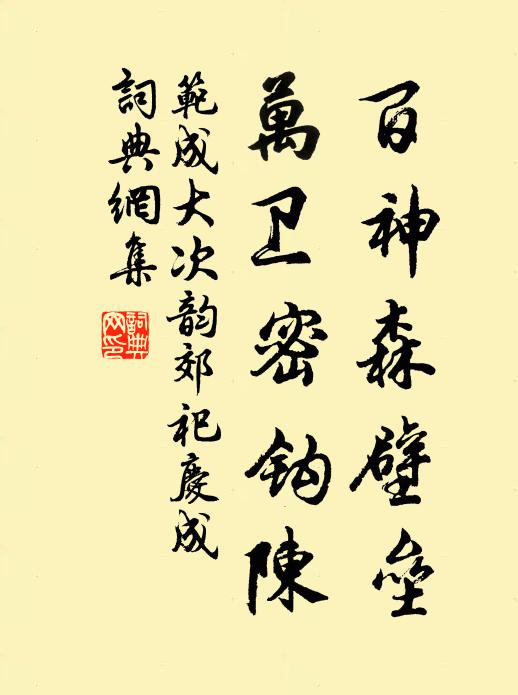 百神森壁垒
萬卫密钩陳
範成大次韵郊祀慶成
詞典網集
詞典網印